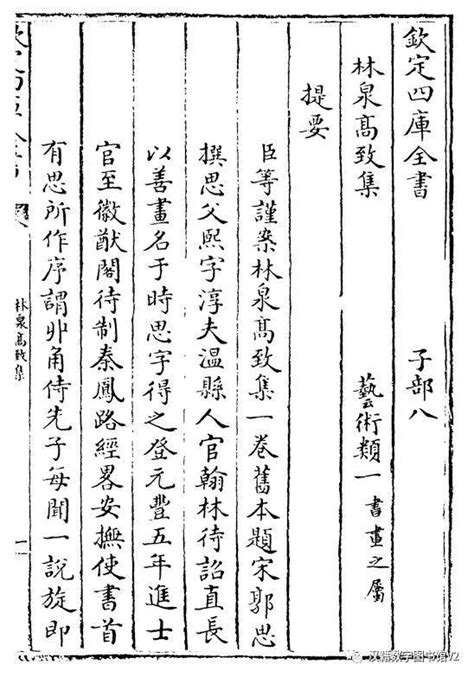 欽定四庫全書 子部八
林泉髙致集 藝術類一 書畫之屬
提要
臣等謹案林泉髙致集一卷舊本題宋郭思
撰思父熙字淳夫温縣人官翰林待詔直長
以善畫名于時思字得之登元豐五年進士
官至徽猷閣待制秦鳳路經畧安撫使書首
有思所作序謂丱角侍先子每聞一說旋即
林泉髙致集
一
汉籍数字图书馆V2